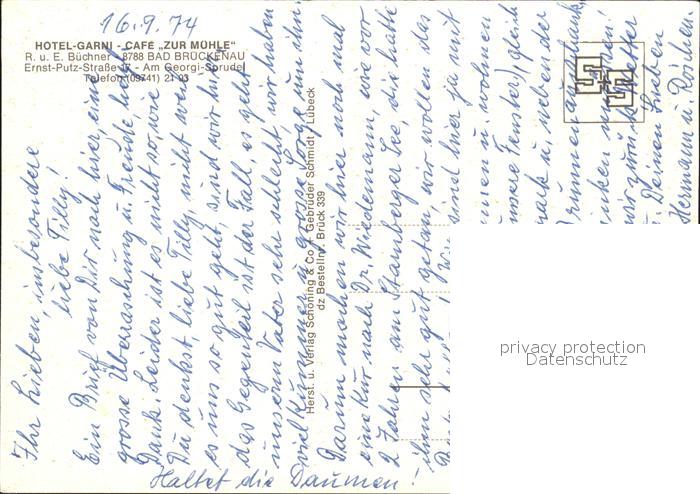 16.9.74
HOTEL-GARNI - CAFÉ „ZUR MÜHLE"
R. u. E. Büchner - 8788 BAD BRÜCKENAU
Ernst-Putz-Straße - Am Georgi-Sprudel
Telefon (09741) 21 03
Ihr Lieben, insbesondere
liebe Tilly!
Ein Brief von Dir nach hier, eine
grosse Überraschung u. Freude, hab
Dank. Leider ist es nicht so, wie
Du denkst, liebe Tilly, nicht weil
es uns so gut geht, sind wir hier,
das Gegenteil ist der Fall, es geht
unserm Vater sehr schlecht, wir haben
viel Kummer u. grosse Sorge um ihn.
Darum machen wir hier nochmal
eine Kur nach Dr. Wiedemann, wie vor
2 Jahren am Starnberger See, die hatte
ihm sehr gut getan, wir wollen das
Wir sind hier ja mit
u. wohnen
unsere Fenster) gleich
u. neben der
Brunnenausschank,
trinken
wir zum
Deinen lieben
Hermann u. Daihen.
Haltet die Daumen!
Herst. u. Verlag Schöning & Co + Gebrüder Schmidt, Lübeck
dz Bestellnr. Brück 339
privacy protection
Datenschutz